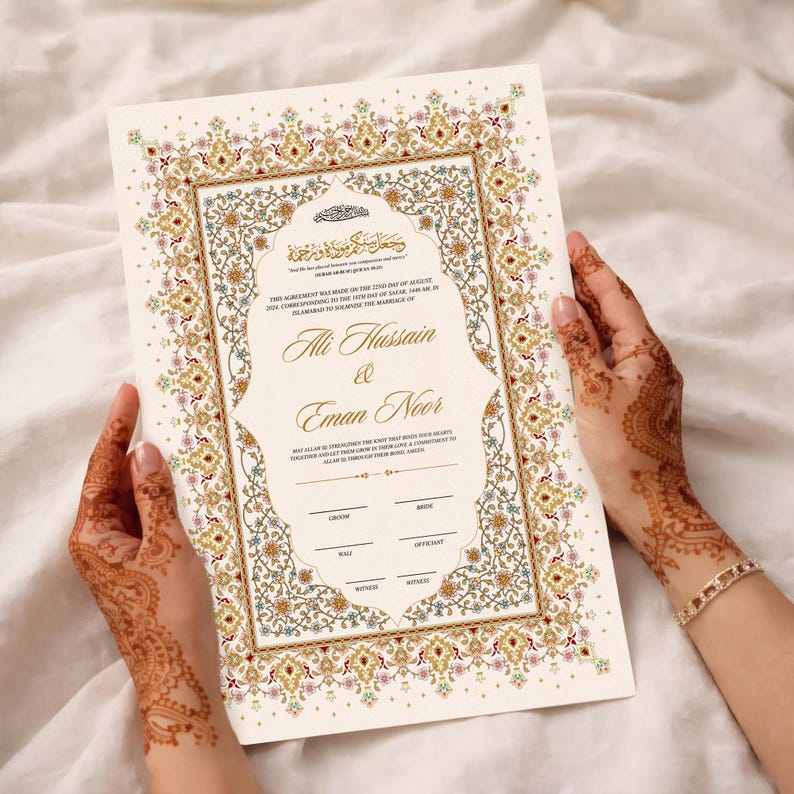 بسم الله الرحمن الرحيم
وَجَعَلَ بَيْنَكُم مَّوَدَّةً وَرَحْمَةً
"And He has placed between you compassion and mercy"
(SURAH AR-RUM | QUR'AN 30:21)
THIS AGREEMENT WAS MADE ON THE 22ND DAY OF AUGUST,
2024, CORRESPONDING TO THE 18TH DAY OF SAFAR, 1446 AH, IN
ISLAMABAD TO SOLMNISE THE MARRIAGE OF
Ali Hussain
&
Eman Noor
MAY ALLAH ﷻ STRENGTHEN THE KNOT THAT BINDS YOUR HEARTS
TOGETHER AND LET THEM GROW IN THEIR LOVE & COMMITMENT TO
ALLAH ﷻ THROUGH THEIR BOND, AMEEN.
GROOM BRIDE
WALI OFFICIANT
WITNESS WITNESS